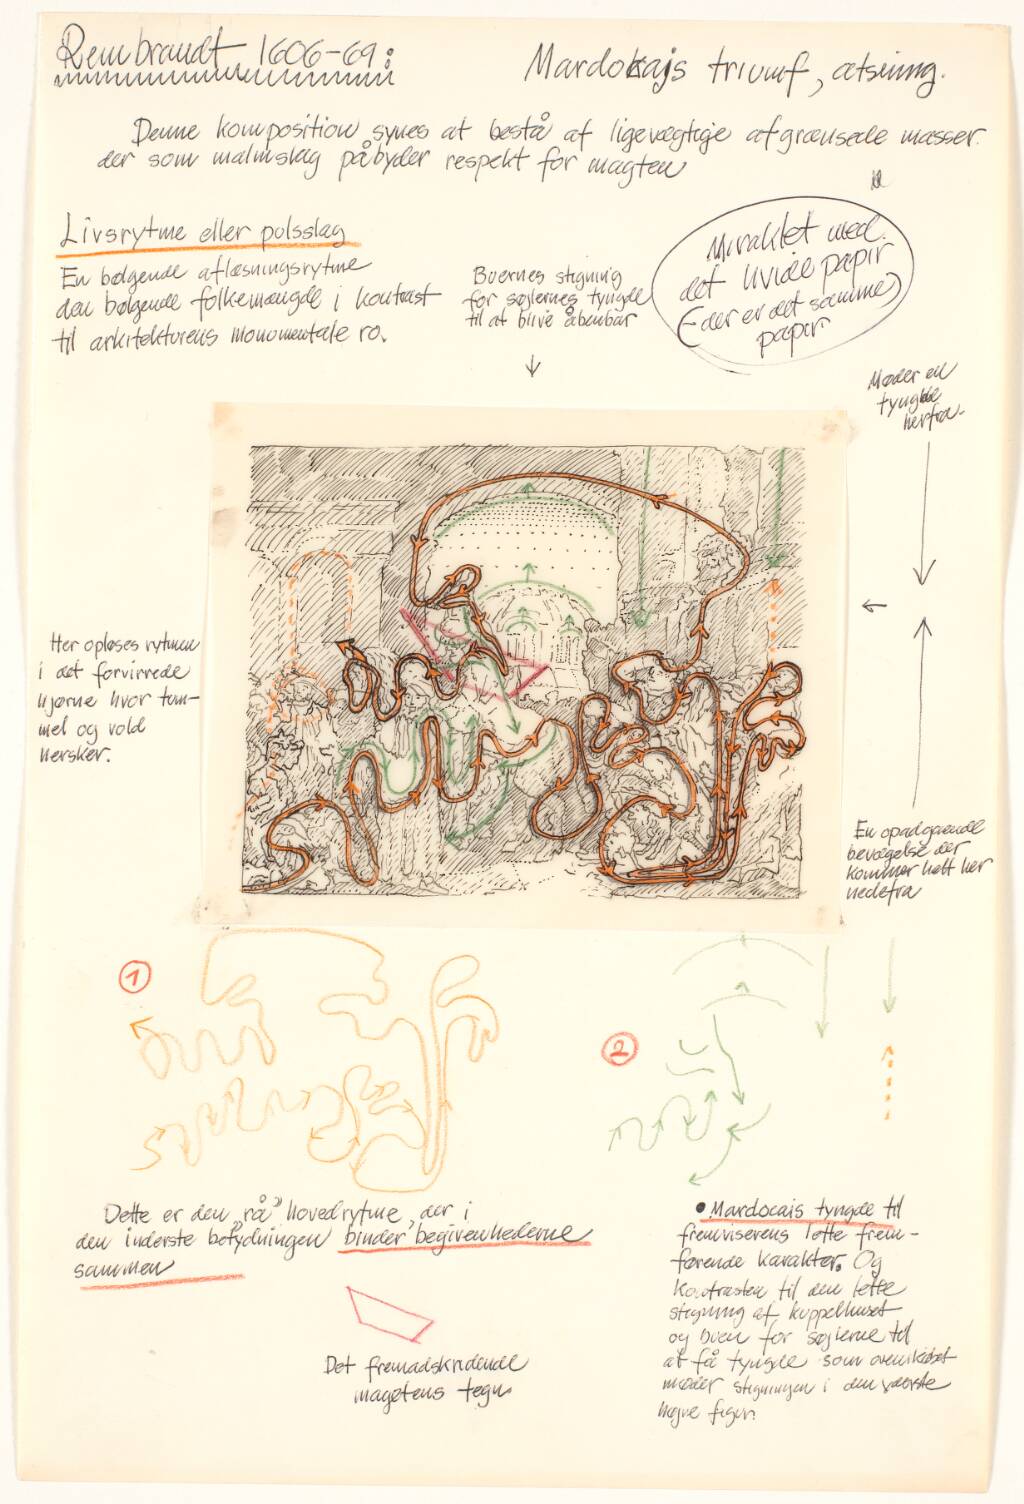 Rembrandt 1606-69:
Mardokajs triumf, ætsning.
Denne komposition synes at bestå af ligevægtige afgrænsede masser.
der som malmslag påbyder respekt for magten
Livsrytme eller polsslag
En bølgende aflæsningsrytme
den bølgende folkemængde i kontrast
til arkitekturens monumentale ro.
Buernes stigning
for søjlernes tyngde
til at blive åbenbar
Miraklet med
det hvide papir
(der er det samme)
papir
Møder en
tyngde
herfra.
Her opløses rytmen
i det forvirrede
hjørne hvor tum-
mel og vold
hersker.
En opadgående
bevægelse der
kommer helt her
nedefra
1
2
Dette er den "rå" hovedrytme, der i
den inderste betydningen binder begivenhederne
sammen
Det fremadskridende
magtens tegn
Mardocais tyngde til
fremviserens lette frem-
førende karakter. Og
kontrasten til den lette
stigning af kuppelhuset
og buen for søjlerne til
at få tyngde som ovenikøbet
møder stigningen i den yderste
højre figur.